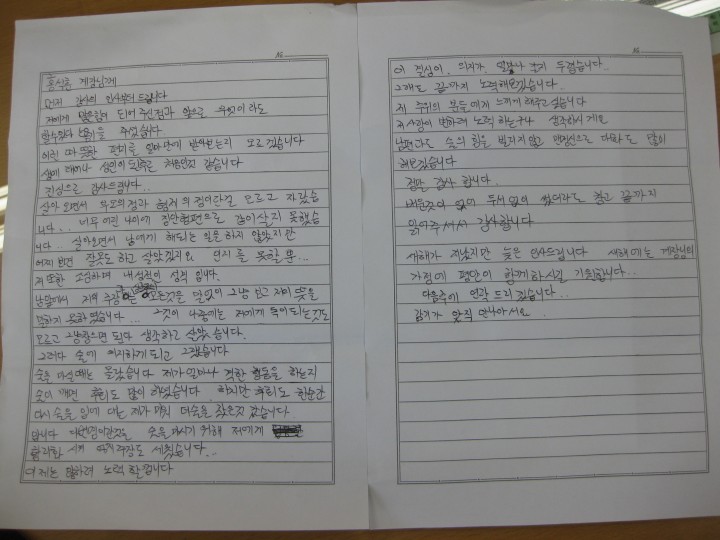 홍석춘 계장님께
먼저 감사의 인사부터 드립니다
저에게 힘이 되어 주신점과 앞으로 무엇이라도
할수있다는 희망을 주었습니다
이런 따뜻한 편지를 얼마만에 받아보는지 모르겠습니다
생에 태어나 성인이 된후로는 처음인것 같습니다
진심으로 감사드립니다...
살아오면서 부모의정과 형제의 정이란걸 모르고 자랐습
니다... 너무 어린 나이에 집안형편으로 같이살지 못했습
니다.. 살아오면서 남에게 해되는 일을 하지 않았지만
어찌 보면 잘못도 하고 살았겠지요 먼지를 못할 뿐...
저 또한 소심하며 내성적인 성격 입니다.
남앞에서 저의 주장 모든것을 말없이 그냥 믿고 저의 뜻을
말하지 못하였습니다... 그것이 나중에는 저에게 독이되는것도
모르고 그냥참으면 된다 생각하고 살았습니다.
그러다 술에 의지하게되고 그랬습니다
술을 마실때는 몰랐습니다 제가얼마나 격한 행동을 하는지
술이 깨면 후회도 많이 하였습니다. 하지만 후회도 한순간
다시 술을 입에 대는 제가 더욱 더술을 찾은것 같습니다
압니다 술을 마시기 위해 저에게
합리화 시켜 자기주장도 세웠습니다...
이제는 변하려 노력 할겁니다
이 결심이, 의지가, 얼마나 갈지 두렵습니다.
그래도 끝까지 노력해보겠습니다.
제 주위의 분들에게 느끼게 해주고 싶습니다
저사람이 변하려 노력 하는구나 생각하시게요
남편과도 술의 힘을 빌리지않고 맨정신으로 대화도 많이
해보겠습니다
정말 감사 합니다.
배운것이 없어 두서없이 썼더라도 참고 끝까지
읽어주셔서 감사합니다
새해가 지났지만 늦은 인사드립니다 새해에는 계장님의
가정에 평안이 함께하시길 기원합니다...
다음주에 연락 드리겠습니다..
감기가 안직 안나아서요..